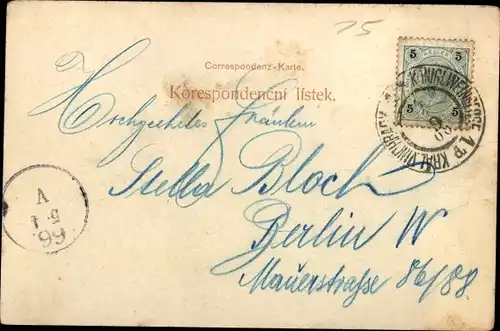 75
Correspondenz-Karte.
Korespondenční lístek.
5 5
HELLER
5 5
Hochgeehrtes Fräulein
Stella Bloch
Berlin W
Mauerstraße 86/88.
V
5 1
99